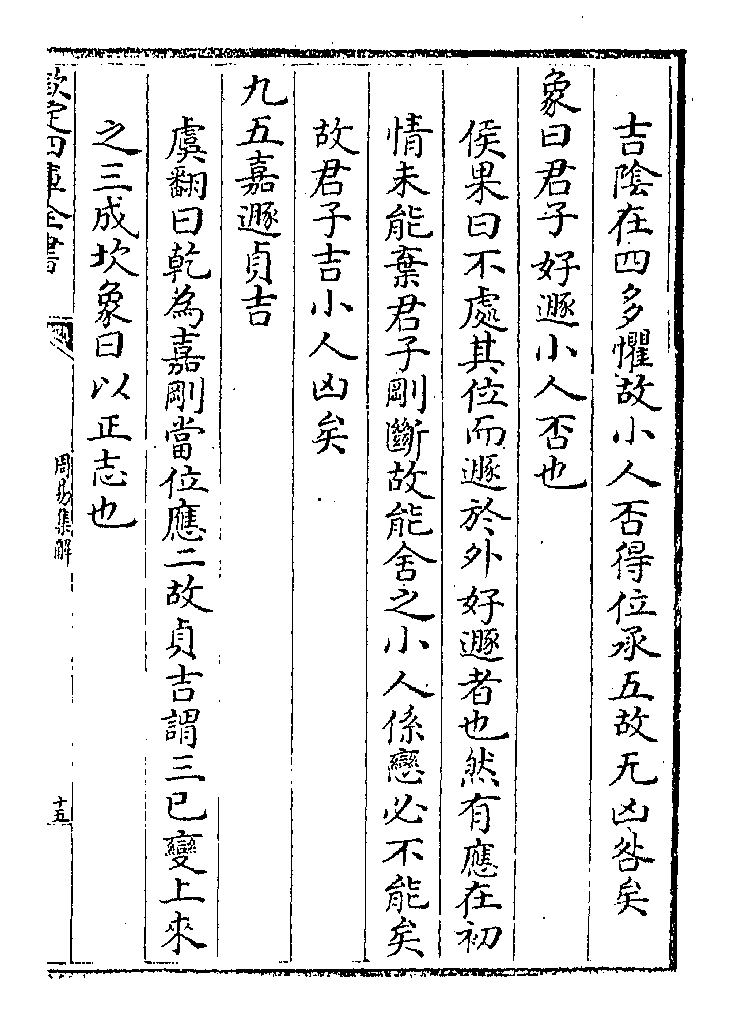 吉陰在四多懼故小人否得位承五故无凶咎矣
象曰君子好遯小人否也
侯果曰不處其位而遯於外好遯者也然有應在初
情未能棄君子剛斷故能舍之小人係戀必不能矣
故君子吉小人凶矣
九五嘉遯貞吉
虞翻曰乾為嘉剛當位應二故貞吉謂三已變上來
之三成坎象曰以正志也
欽定四庫全書
周易集解
十五